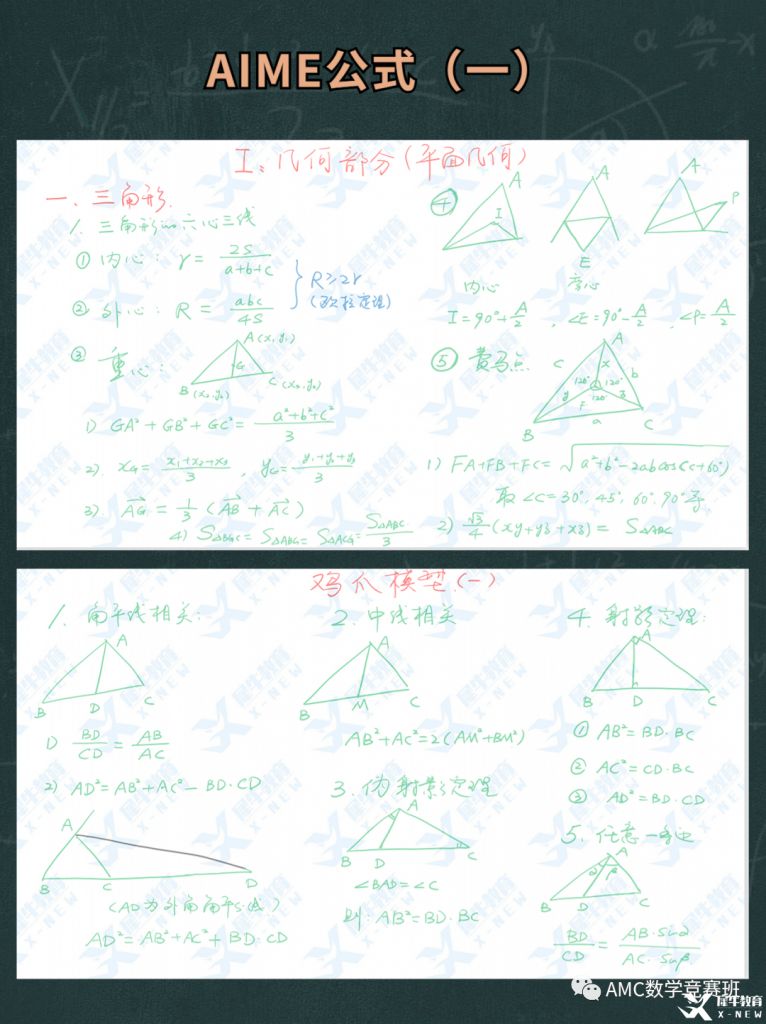 AIME公式（一）
I、几何部分（平面几何）
一、三角形.
1. 三角形的六心三线
① 内心: r = 2S/(a+b+c)
② 外心: R = abc/4S
} R≥2r
(欧拉定理)
③ 重心:
A(x₁,y₁)
G
B(x₂,y₂)
C(x₃,y₃)
1) GA²+GB²+GC² = (a²+b²+c²)/3
2) x_G = (x₁+x₂+x₃)/3 , y_G = (y₁+y₂+y₃)/3
3) AG→ = 1/3 (AB→ + AC→)
4) S△BGC = S△ABG = S△ACG = S△ABC/3
④
A
I
A
E
A
P
内心
旁心
I=90°+A/2 , ∠E=90°-A/2 , ∠P=A/2
⑤ 费马点
A
c
x
b
120°
120°
120°
y
z
F
B
a
C
1) FA+FB+FC = √(a²+b²-2abcos(C+60°))
取 ∠C=30°, 45°, 60°, 90°等
2) √3/4 (xy+yz+xz) = S△ABC
鸡爪模型(一)
1. 角平线相关:
A
B
D
C
1) BD/CD = AB/AC
2) AD²=AB²+AC²-BD·CD
A
B
C
D
(AD为外角角平分线)
AD²=AB²+AC²+BD·CD
2. 中线相关
A
B
M
C
AB²+AC²=2(AM²+BM²)
3. 伪射影定理
A
B
D
C
∠BAD=∠C
则: AB²=BD·BC
4. 射影定理:
A
B
D
C
① AB²=BD·BC
② AC²=CD·BC
③ AD²=BD·CD
5. 任意一
A
α
β
B
D
C
BD/CD = AB·sinα/AC·sinβ
AMC数学竞赛班
犀牛教育
X-NEW